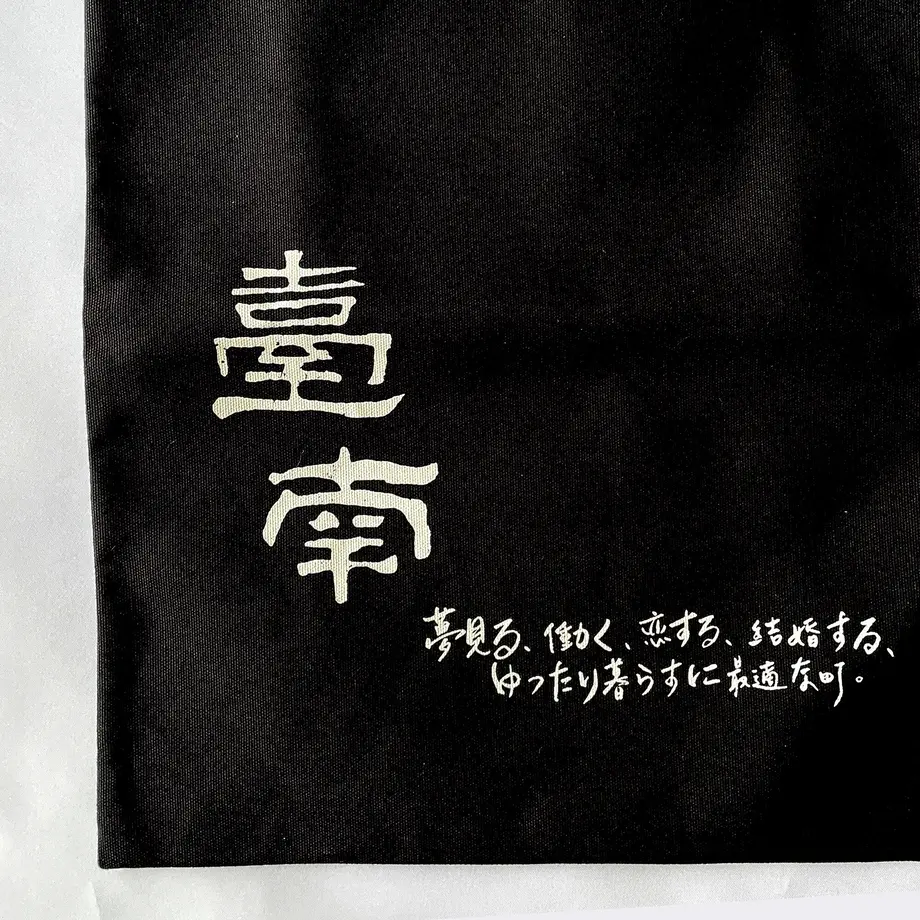 臺南
夢見る、働く、恋する、結婚する、
ゆったり暮らすに最適な町。